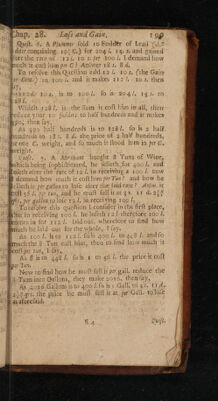 Chap. 28. Loss and Gain. 199
Quest. 6. A Plumer sold 10 Fodder of Lead (the
Fodder containing 19½ C.) for 204 l. 15 s. and gained
after the rate of 12 l. 10 s. per 100 l. I demand how
much it cost him per C? Answer 18 s. 8 d.
To resolve this Question add 12 l. 10 s. (the Gain
per Cent.) to 100 l. and it makes 112 l. 10 s. then
say,
As 112 l. 10 s. is to 100 l. so is 204 l. 15 s. to
182 l.
Which 182 l. is the sum it cost him in all, then
reduce your 10 fodder to half hundreds and it makes
390, then say,
As 390 half hundreds is to 182 l. so is 2 half
hundreds to 18 s. 8 d. the price of 2 half hundreds,
or one C. weight, and so much it stood him in per C.
weight.
Quest. 7. A Merchant bought 8 Tuns of Wine,
which being sophisticated, he selleth for 400 l. and
loseth after the rate of 12 l. in receiving 100 l. now
I demand how much it cost him per Tun? and how he
selleth it per gallon to lose after the said rate?
per gallon to lose 12 l. in receiving 100 l.
To resolve this question I consider in the first place,
that in receiving 100 l. he loseth 12 l. therefore 100 l.
comes in for 112 l. laid out, wherefore to find how
much he laid out for the whole, I say,
As 100 l. is to 112 l. so is 400 l. to 448 l. and so
much the 8 Tun cost him, then to find how much it
cost per Tun, I say,
As 8 is to 448 l. so is 1 to 56 l. the price it cost
per Tun.
Now to find how he must sell it per gall. reduce the
8 Tuns into Gallons, they make 2016, then say,
As 2016 Gallons is to 400 l. so is 1 Gall. to
the price he must sell it at per Gall. to lose
as aforesaid.
Quest.